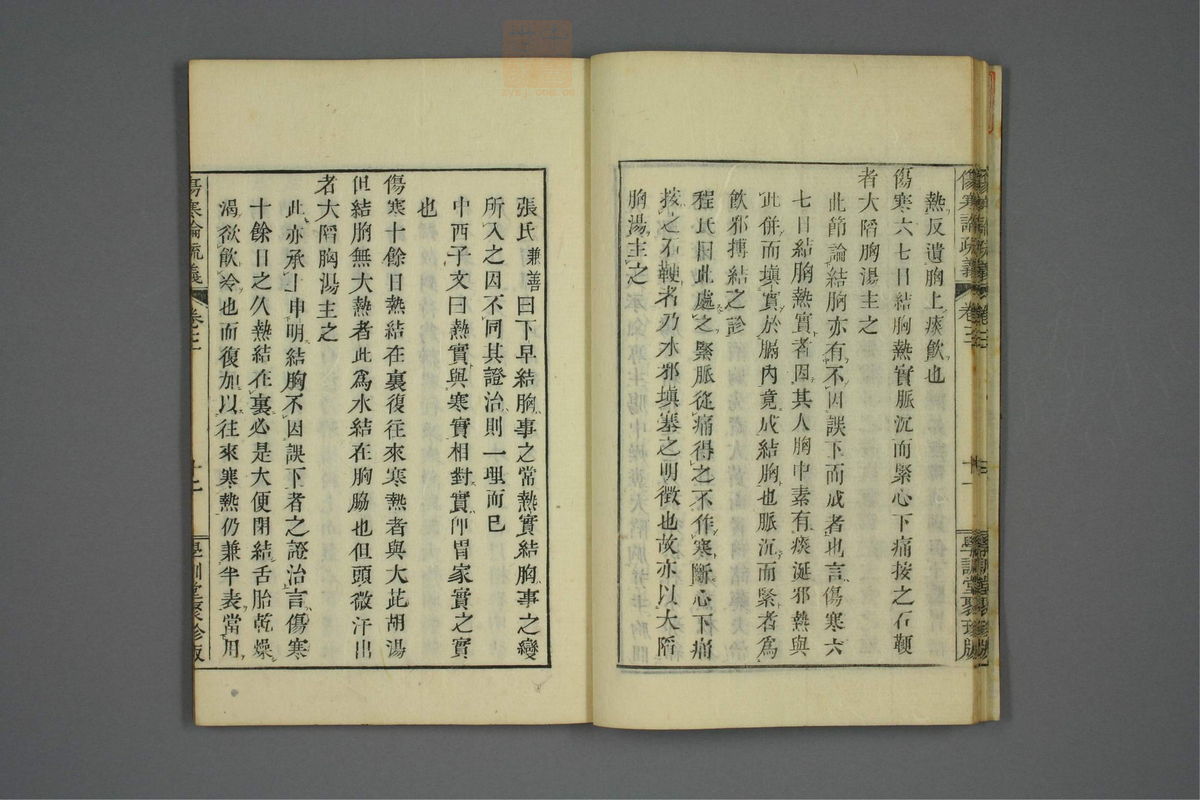 熱反遺胸上痰飲也
傷寒六七日結胸熱實脈沉而緊心下痛按之石鞕
者大陷胸湯主之
此節論結胸亦有不因誤下而成者也言傷寒六
七日結胸熱實者因其人胸中素有痰涎邪熱與
此併而填實於膈內竟成結胸也脈沉而緊者爲
飲邪搏結之診
程氏因此處之緊脈從痛得之不作寒斷心下痛
按之石鞕者乃水邪填塞之明徵也故亦以大陷
胸湯主之
傷寒論疏義
卷三
十一
學訓堂聚珍版
張氏兼善曰下早結胸事之常熱實結胸事之變
所入之因不同其證治則一理而已
中西子文曰熱實與寒實相對實卽胃家實之實
也
傷寒十餘日熱結在裏復往來寒熱者與大茈胡湯
但結胸無大熱者此爲水結在胸脇也但頭微汗出
者大陷胸湯主之
此亦承上申明結胸不因誤下者之證治言傷寒
十餘日之久熱結在裏必是大便閉結舌胎乾燥
渴欲飲冷也而復加以往來寒熱仍兼半表當用
傷寒論疏義
卷三
十二
學訓堂聚珍版